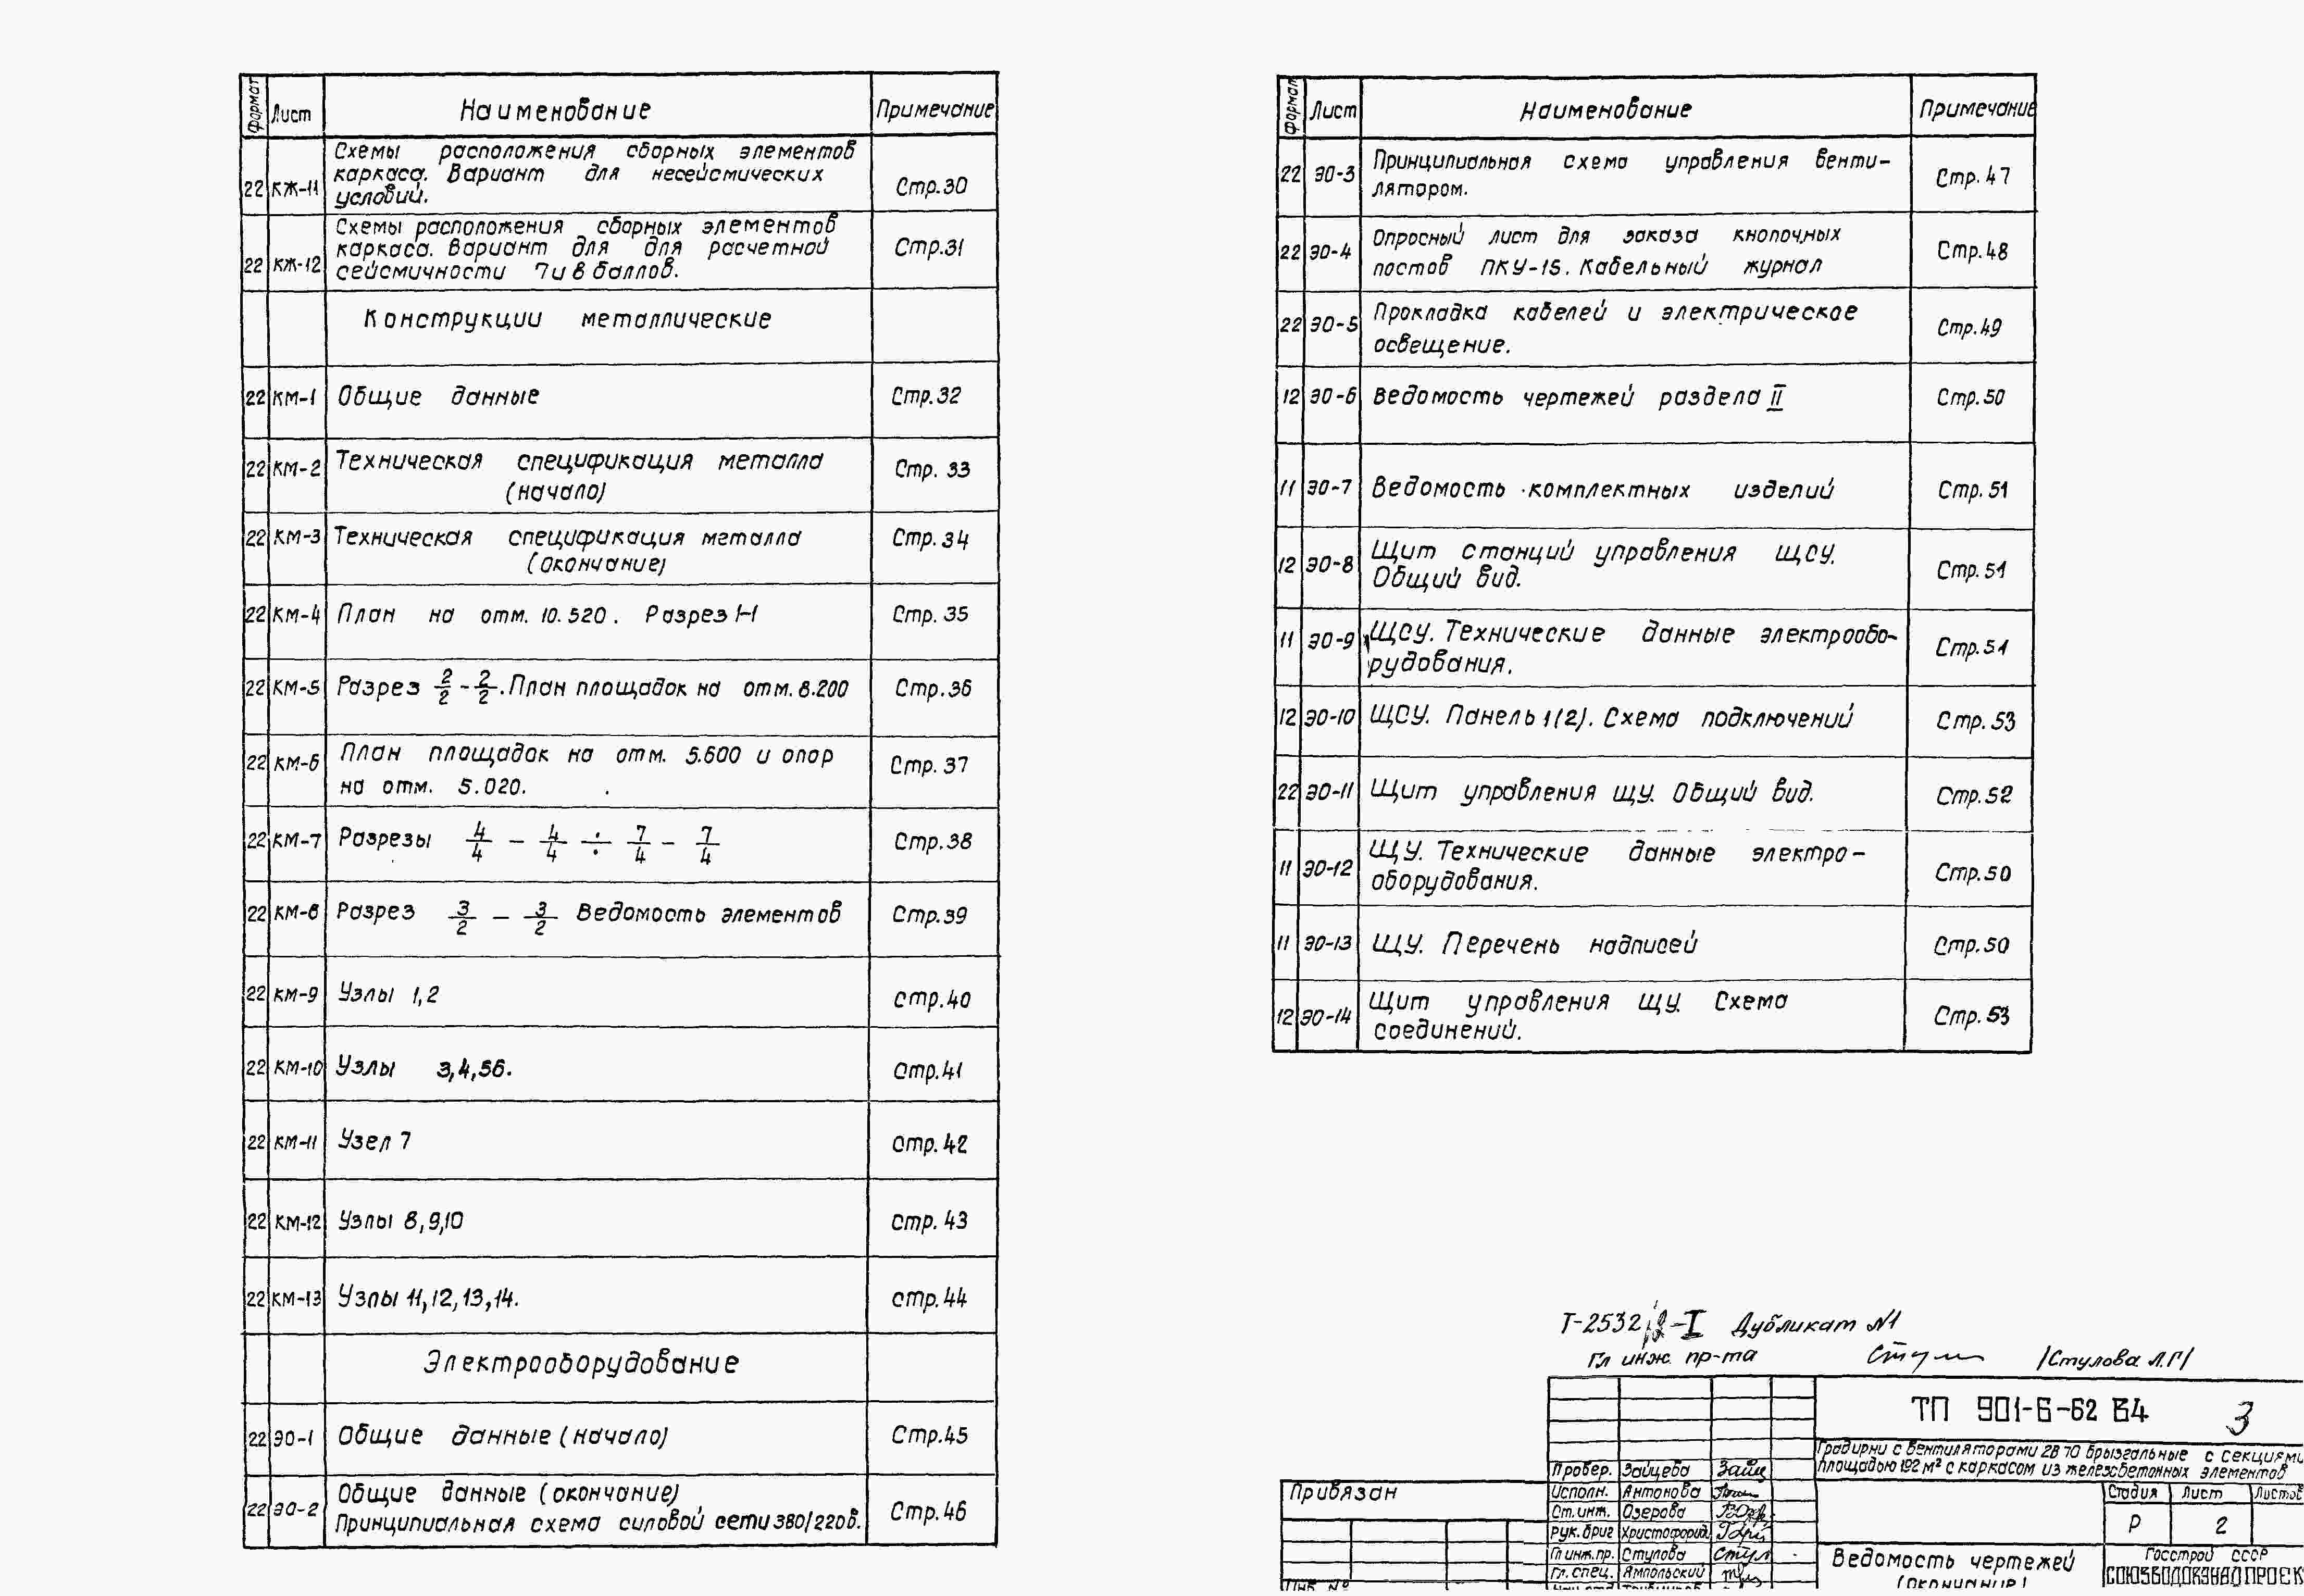 Формат Лист Наименование Примечание
22 КЖ-11 Схемы расположения сборных элементов
каркаса. Вариант для несейсмических
условий. Стр.30
22 КЖ-12 Схемы расположения сборных элементов
каркаса. Вариант для для расчетной
сейсмичности 7 и 8 баллов. Стр.31
Конструкции металлические
22 КМ-1 Общие данные Стр.32
22 КМ-2 Техническая спецификация металла
(начало) Стр. 33
22 КМ-3 Техническая спецификация металла
(окончание) Стр. 34
22 КМ-4 План на отм. 10.520. Разрез 1-1 Стр. 35
22 КМ-5 Разрез 2/2 - 2/2. План площадок на отм. 8.200 Стр. 36
22 КМ-6 План площадок на отм. 5.600 и опор
на отм. 5.020. Стр. 37
22 КМ-7 Разрезы 4/4 - 4/4 ÷ 7/4 - 7/4 Стр.38
22 КМ-8 Разрез 3/2 - 3/2 Ведомость элементов Стр.39
22 КМ-9 Узлы 1,2 стр.40
22 КМ-10 Узлы 3,4,56. стр.41
22 КМ-11 Узел 7 стр. 42
22 КМ-12 Узлы 8,9,10 стр. 43
22 КМ-13 Узлы 11,12,13,14. стр. 44
Электрооборудование
22 ЭО-1 Общие данные (начало) Стр.45
22 ЭО-2 Общие данные (окончание)
Принципиальная схема силовой сети 380/220в. Стр.46
Формат Лист Наименование Примечание
22 ЭО-3 Принципиальная схема управления венти-
лятором. Стр. 47
22 ЭО-4 Опросный лист для заказа кнопочных
постов ПКУ-15. Кабельный журнал Стр.48
22 ЭО-5 Прокладка кабелей и электрическое
освещение. Стр.49
12 ЭО-6 Ведомость чертежей раздела II Стр. 50
11 ЭО-7 Ведомость комплектных изделий Стр. 51
12 ЭО-8 Щит станций управления ЩСУ.
Общий вид. Стр. 51
11 ЭО-9 ЩСУ. Технические данные электрообо-
рудования. Стр.51
12 ЭО-10 ЩСУ. Панель 1(2). Схема подключений Стр. 53
22 ЭО-11 Щит управления ЩУ. Общий вид. Стр.52
11 ЭО-12 ЩУ. Технические данные электро-
оборудования. Стр.50
11 ЭО-13 ЩУ. Перечень надписей Стр.50
12 ЭО-14 Щит управления ЩУ. Схема
соединений. Стр. 53
Т-2532 -I Дубликат №1
Гл инж. пр-та /Стулова Л.Г/
ТП 901-6-62 В4 3
Градирни с вентиляторами 2В 70 брызгальные с секциями
площадью 192 м² с каркасом из железобетонных элементов
Привязан
Провер. Зайцева
Исполн. Антонова
Ст. инж. Озерова
Рук. бриг Христофорид.
Гл инж. пр. Стулова
Гл. спец. Ямпольский
Стадия Лист Листов
Р 2
Ведомость чертежей
(окончание)
Госстрой СССР
СОЮЗВОДОКАНАЛПРОЕК
Инв. №